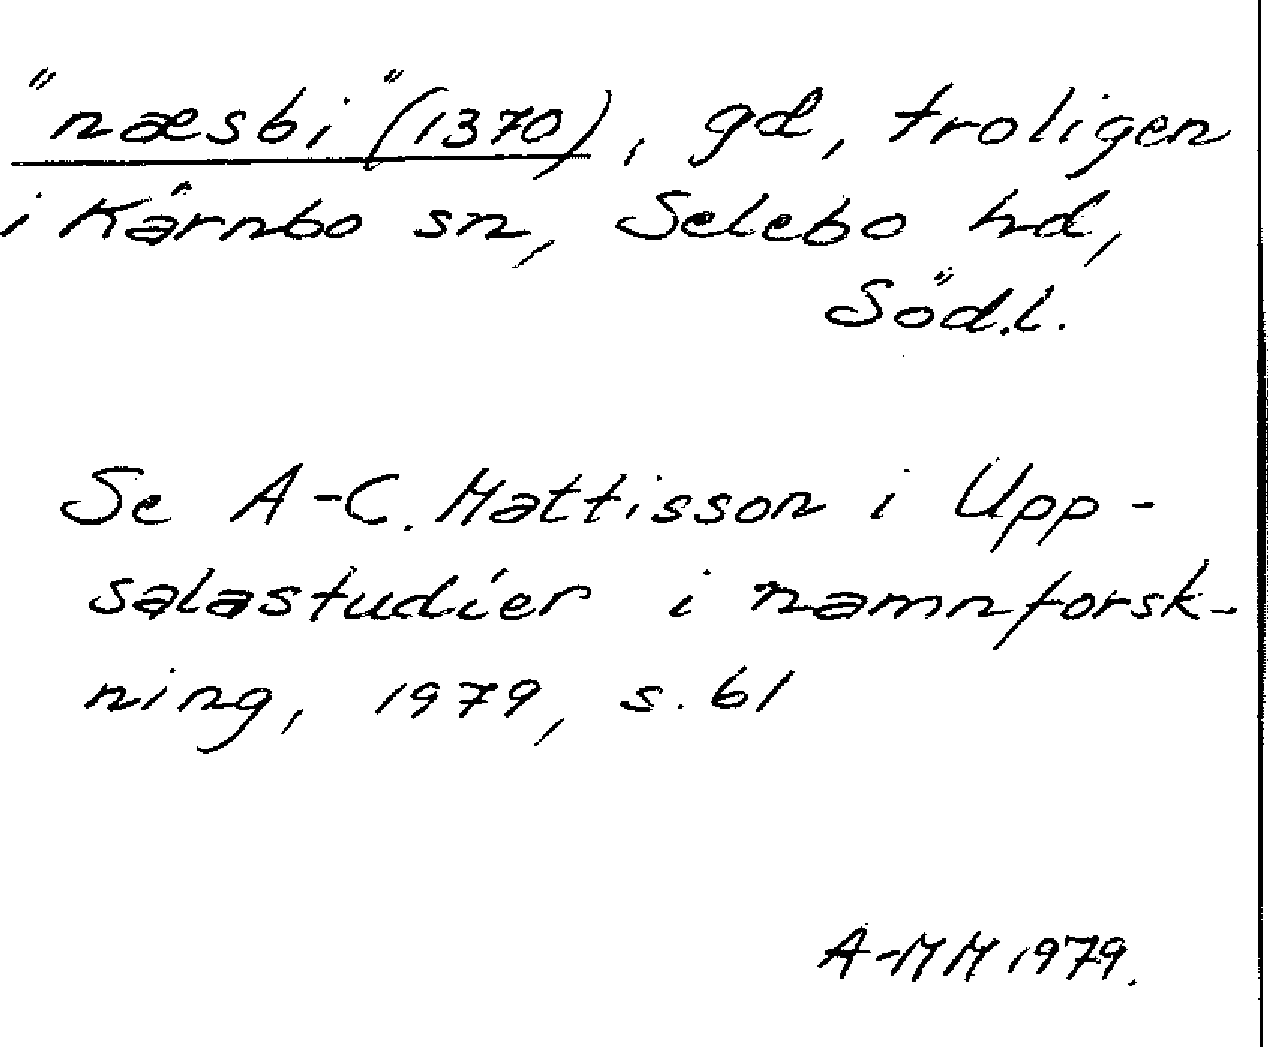 "næsbi" (1370), gd, troligen
i Kärnbo sn, Selebo hd,
Söd.l.
Se A-C. Mattisson i Upp-
salastudier i namnforsk-
ning, 1979, s. 61
A-MM 1979.